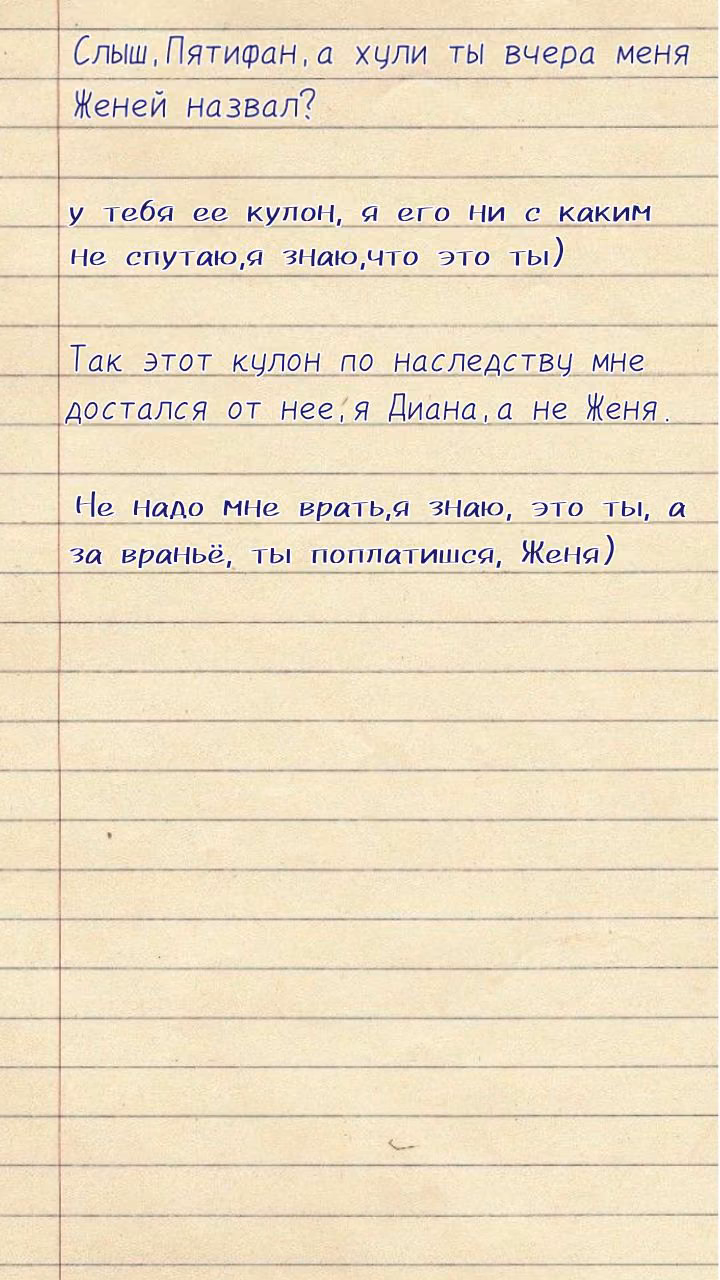 Слыш,Пятифан,а хули ты вчера меня
Женей назвал?
у тебя ее кулон, я его ни с каким
не спутаю,я знаю,что это ты)
Так этот кулон по наследству мне
достался от нее,я Диана,а не Женя.
Не надо мне врать,я знаю, это ты, а
за враньё, ты поплатишся, Женя)